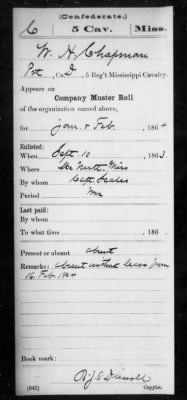 (Confederate.)
C 5 Cav. Miss.
W. H. Chapman
Pvt, Co. D, 5 Reg't Mississippi Cavalry.
Appears on
Company Muster Roll
of the organization named above,
for Jan. & Feb., 1864
Enlisted:
When Sept. 10, 1863.
Where Miss
By whom Capt.
Period
Last paid:
By whom
To what time , 186 .
Present or absent absent
Remarks: absent without leave from
16 Feb. 1864
Book mark:
(642) Copyist.